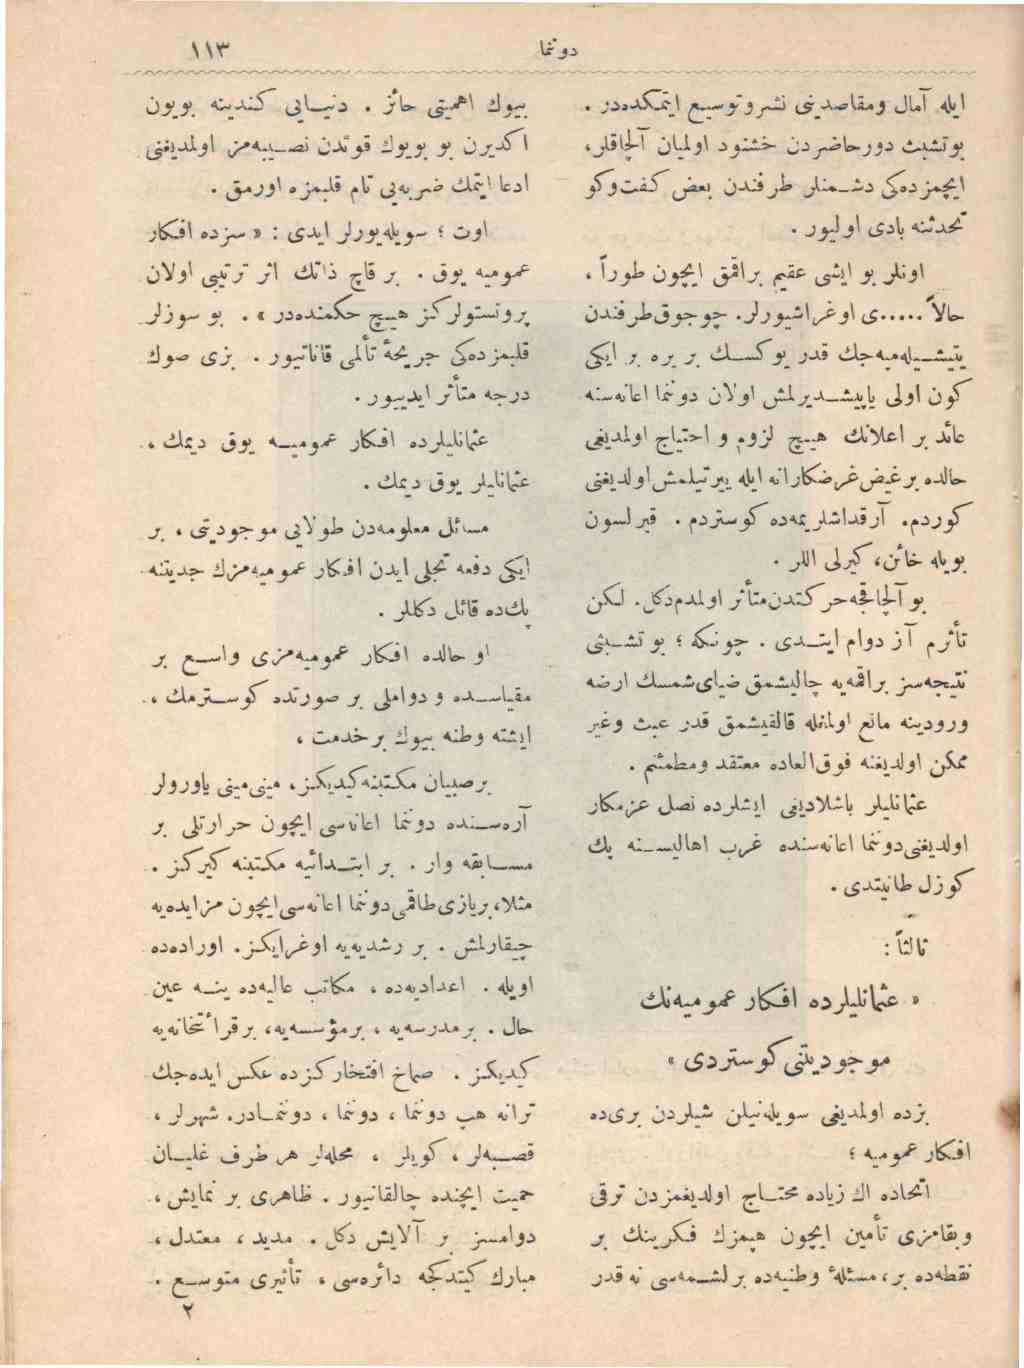 دوننما
١١٣
ایله آمال ومقاصدینی نشر وتوسیع ایتمكده‌در .
بوتشبث دورحاضردن خشنود اولمیان آلچاقلر،
ایچمزده‌كی دشمنلر طرفندن بعض كفت‌وكو
تحدثنه بادی اولیور .
اونلر بو ایشی عقیم براقمق ایچون طوراً ،
حالاً .....ی اوغراشیورلر. چوجوق‌طرفندن
یتیشیله‌میه‌جك قدر یوكسك بر یره بر ایكی
كون اولی یاپیشدیرلمش اولان دوننما اعانه‌سنه
عائد بر اعلانك هیچ لزوم و احتیاج اولمدیغی
حالده برغیض‌غرضكارانه ایله ییرتیلمش‌اولدیغنی
كوردم. آرقداشلریمه‌ده كوستردم . قیرلسون
بویله خائن، كیرلی اللر .
بو آلچاقجه‌حركتدن‌متأثر اولمدم‌دكل. لكن
تأثرم آز دوام ایتدی . چونكه ؛ بو تشبثی
نتیجه‌سز براقمه‌یه چالیشمق ضیای‌شمسك ارضه
ورودینه مانع اولمغله قالقیشمق قدر عبث وغیر
ممكن اولدیغنه فوق‌العاده معتقد ومطمئنم .
عثمانلیلر باشلادیغی ایشلرده نصل عزمكار
اولدیغنی‌دوننما اعانه‌سنده غرب اهالیسنه پك
كوزل طانیتدی .
ثالثاً :
« عثمانلیلرده افكار عمومیه‌نك
موجودیتنی كوستردی »
بزده اولمدیغی سویله‌نیلن شیلردن بری‌ده
افكار عمومیه ؛
اتحاده اك زیاده محتاج اولدیغمزدن ترقی
وبقامزی تأمین ایچون هپمزك فكرینك بر
نقطه‌ده بر، مسئلهٔ وطنیه‌ده برلشمه‌سی نه قدر
بیوك اهمیتی حائز . دنیایی كندینه بویون
اكدیرن بو بویوك قوتدن نصیبه‌مز اولمدیغنی
ادعا ایتمك ضربه‌یی تام قلبمزه اورمق .
اوت ؛ سویله‌یورلر ایدی : « سزده افكار
عمومیه یوق . بر قاچ ذاتك اثر ترتیبی اولان
پروتستولركز هیچ حكمنده‌در » . بو سوزلر
قلبمزده‌كی جریحهٔ تألمی قاناتیور . بزی صوك
درجه متأثر ایدییور .
عثمانلیلرده افكار عمومیه یوق دیمك ،
عثمانلیلر یوق دیمك .
مسائل معلومه‌دن طولایی موجودیتی ، بر
ایكی دفعه تجلی ایدن افكار عمومیه‌مزك جدیتنه
پك‌ده قائل دكللر .
او حالده افكار عمومیه‌مزی واسع بر
مقیاسده و دواملی بر صورتده كوسترمك ،
ایشته وطنه بیوك بر خدمت ،
برصبیان مكتبنه‌كیدیكز، مینی‌مینی یاورولر
آره‌سنده دوننما اعانه‌سی ایچون حرارتلی بر
مسابقه وار . بر ابتدائیه مكتبنه كیركز .
مثلا، بریازی‌طاقمی‌دوننما اعانه‌سی‌ایچون مزایده‌یه
چیقارلمش . بر رشدیه‌یه اوغرایكز. اوراده‌ده
اویله . اعدادیه‌ده ، مكاتب عالیه‌ده ینه عین
حال . برمدرسه‌یه ، برمؤسسه‌یه، برقرائتخانه‌یه
كیدیكز . صماخ افتخاركزده عكس ایده‌جك
ترانه هپ دوننما ، دوننما ، دوننمادر. شهرلر ،
قصبه‌لر ، كویلر ، محله‌لر هر طرف غلیان
حمیت ایچنده چالقانیور . ظاهری بر نمایش ،
دوامسز بر آلایش دكل . مدید ، معتدل ،
مبارك كیتدكجه دائره‌سی ، تأثیری متوسع .
٢